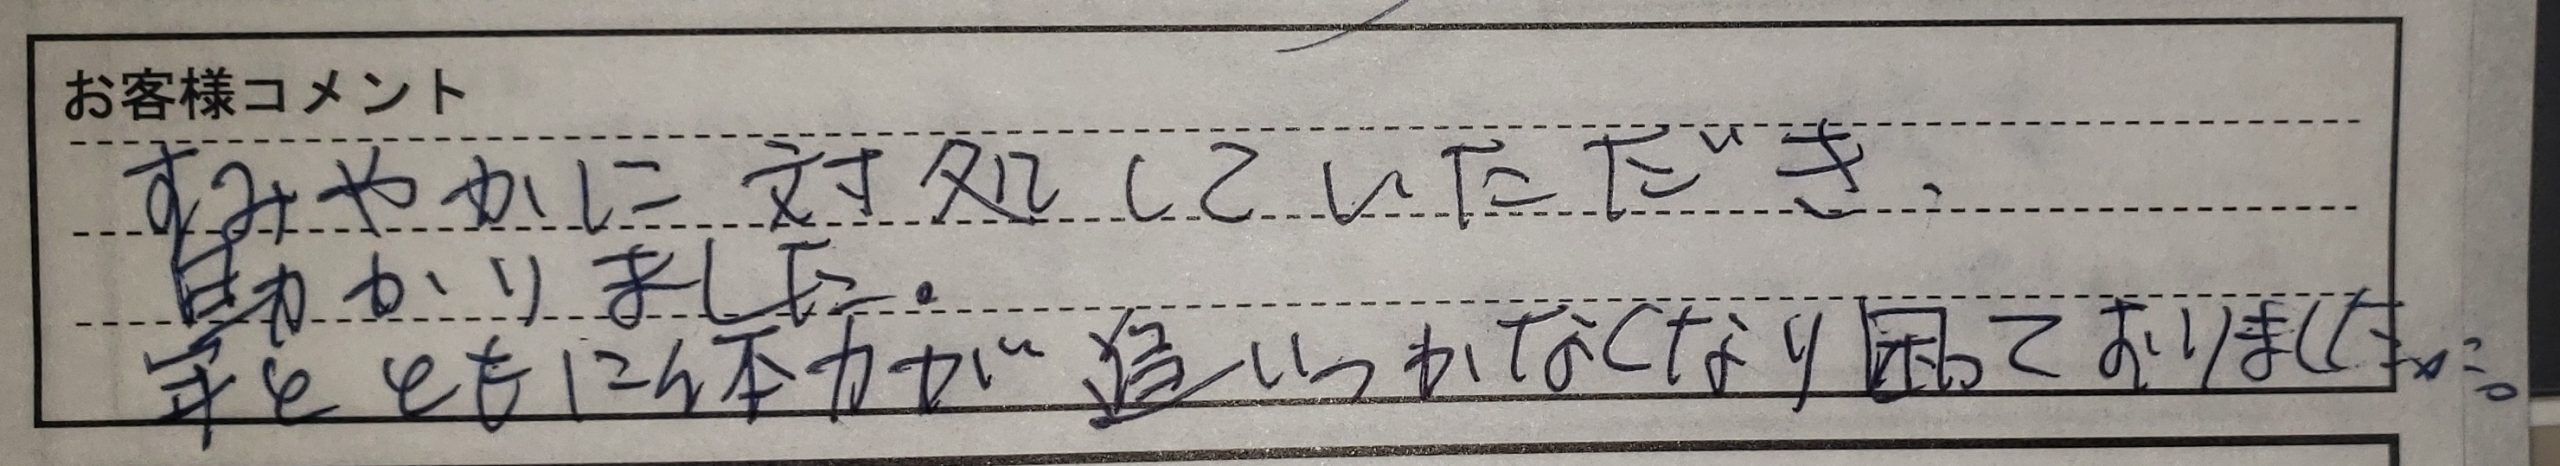 お客様コメント
すみやかに対処していただき、
助かりました。
年とともに体力が追いつかなくなり困っておりました。